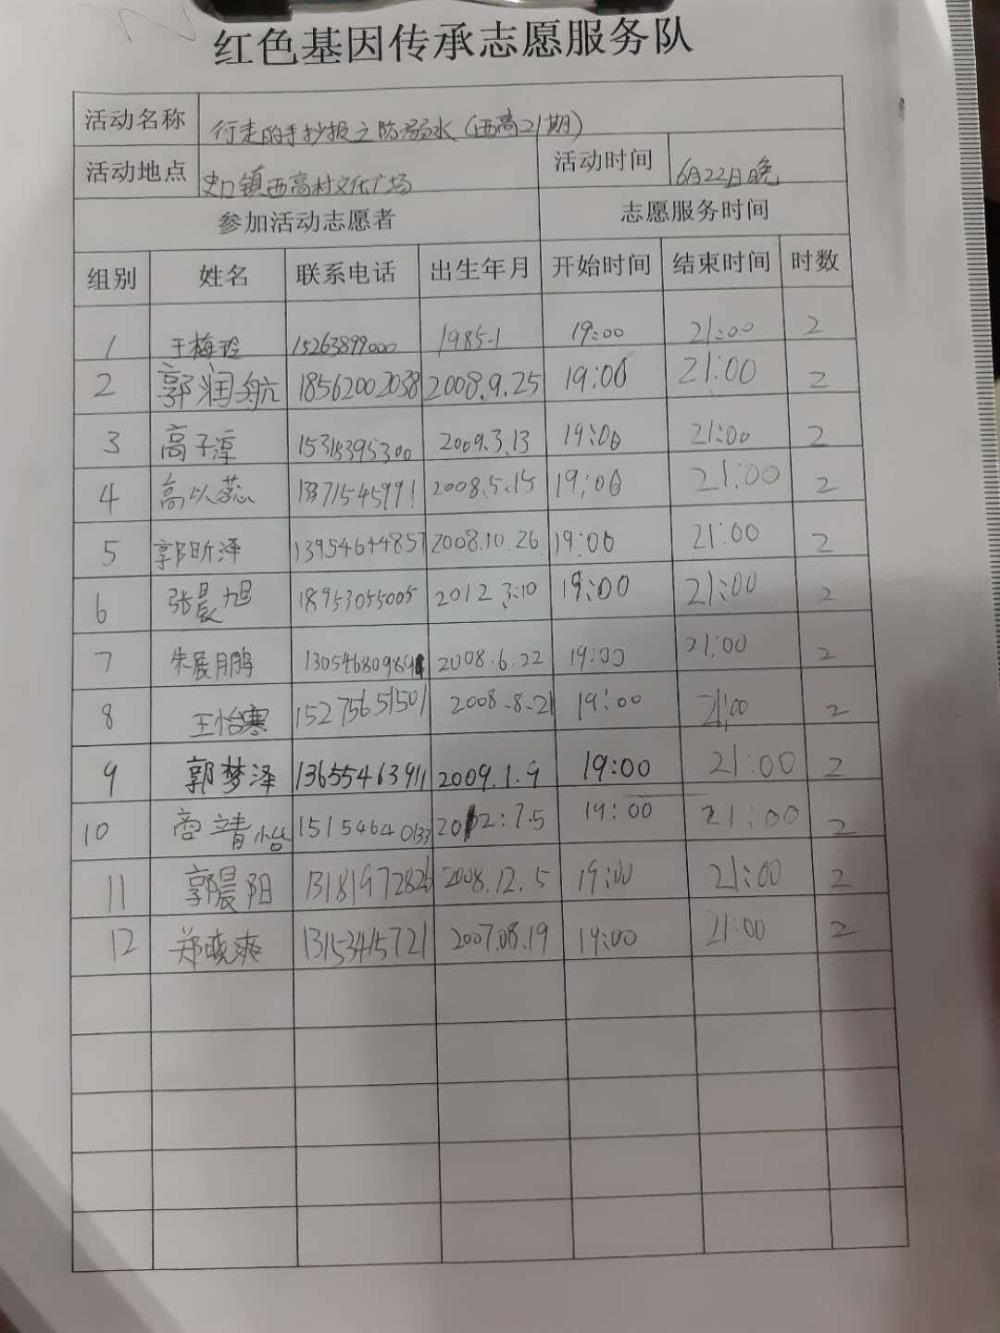 红色基因传承志愿服务队
活动名称 行走的手抄报之防溺水(西高21期)
活动地点 史口镇西高村文化广场 活动时间 6月22日晚
参加活动志愿者 志愿服务时间
组别 姓名 联系电话 出生年月 开始时间 结束时间 时数
1 王梅玲 15263899000 1985.1 19:00 21:00 2
2 郭润航 18562002038 2008.9.25 19:00 21:00 2
3 高子淳 15315395300 2009.3.13 19:00 21:00 2
4 高以蕊 13371545991 2008.5.15 19:00 21:00 2
5 郭昕泽 13954644857 2008.10.26 19:00 21:00 2
6 张晨旭 18953055005 2012.3.10 19:00 21:00 2
7 朱展鹏 13054680989 2008.6.22 19:00 21:00 2
8 王怡寒 15275651501 2008.8.21 19:00 21:00 2
9 郭梦泽 13655463911 2009.1.9 19:00 21:00 2
10 商靖怡 15154640133 2012:7.5 19:00 21:00 2
11 郭晨阳 13181972826 2008.12.5 19:00 21:00 2
12 郑晓爽 13153415721 2007.08.19 19:00 21:00 2